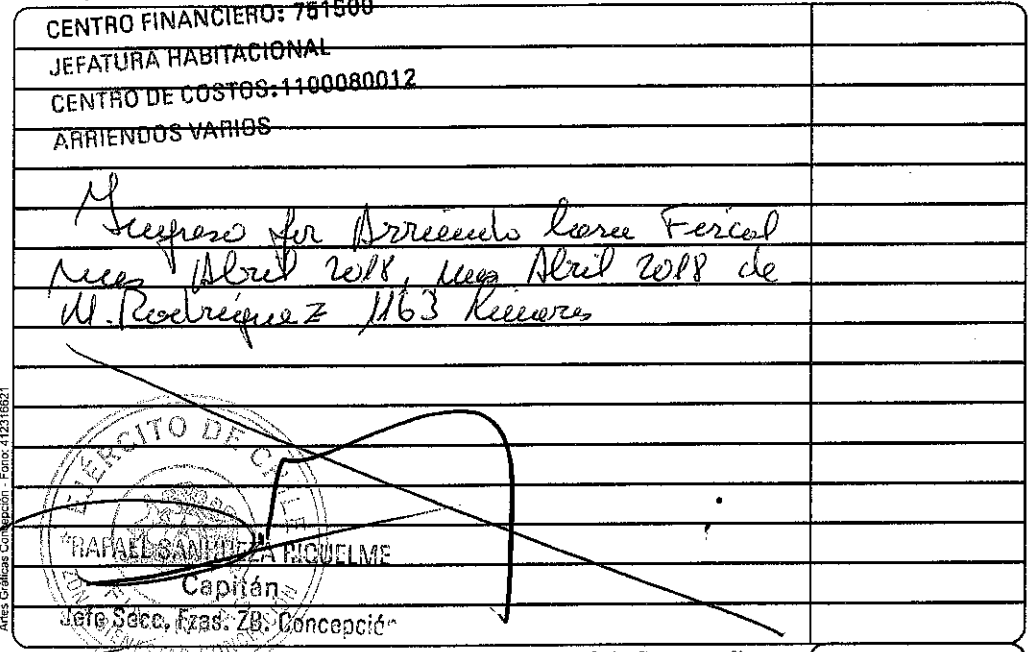 CENTRO FINANCIERO: 751500
JEFATURA HABITACIONAL
CENTRO DE COSTOS: 1100080012
ARRIENDOS VARIOS
Ingreso por Arriendo Casa Fiscal
mes Abril 2018, mes Abril 2018 de
M. Rodriguez 1163 Linares
EJÉRCITO DE CHILE
RAFAEL SANHUEZA RIQUELME
Capitán
Jefe Secc. Fzas. ZB. Concepción
Artes Gráficas Concepción - Fono: 412316621